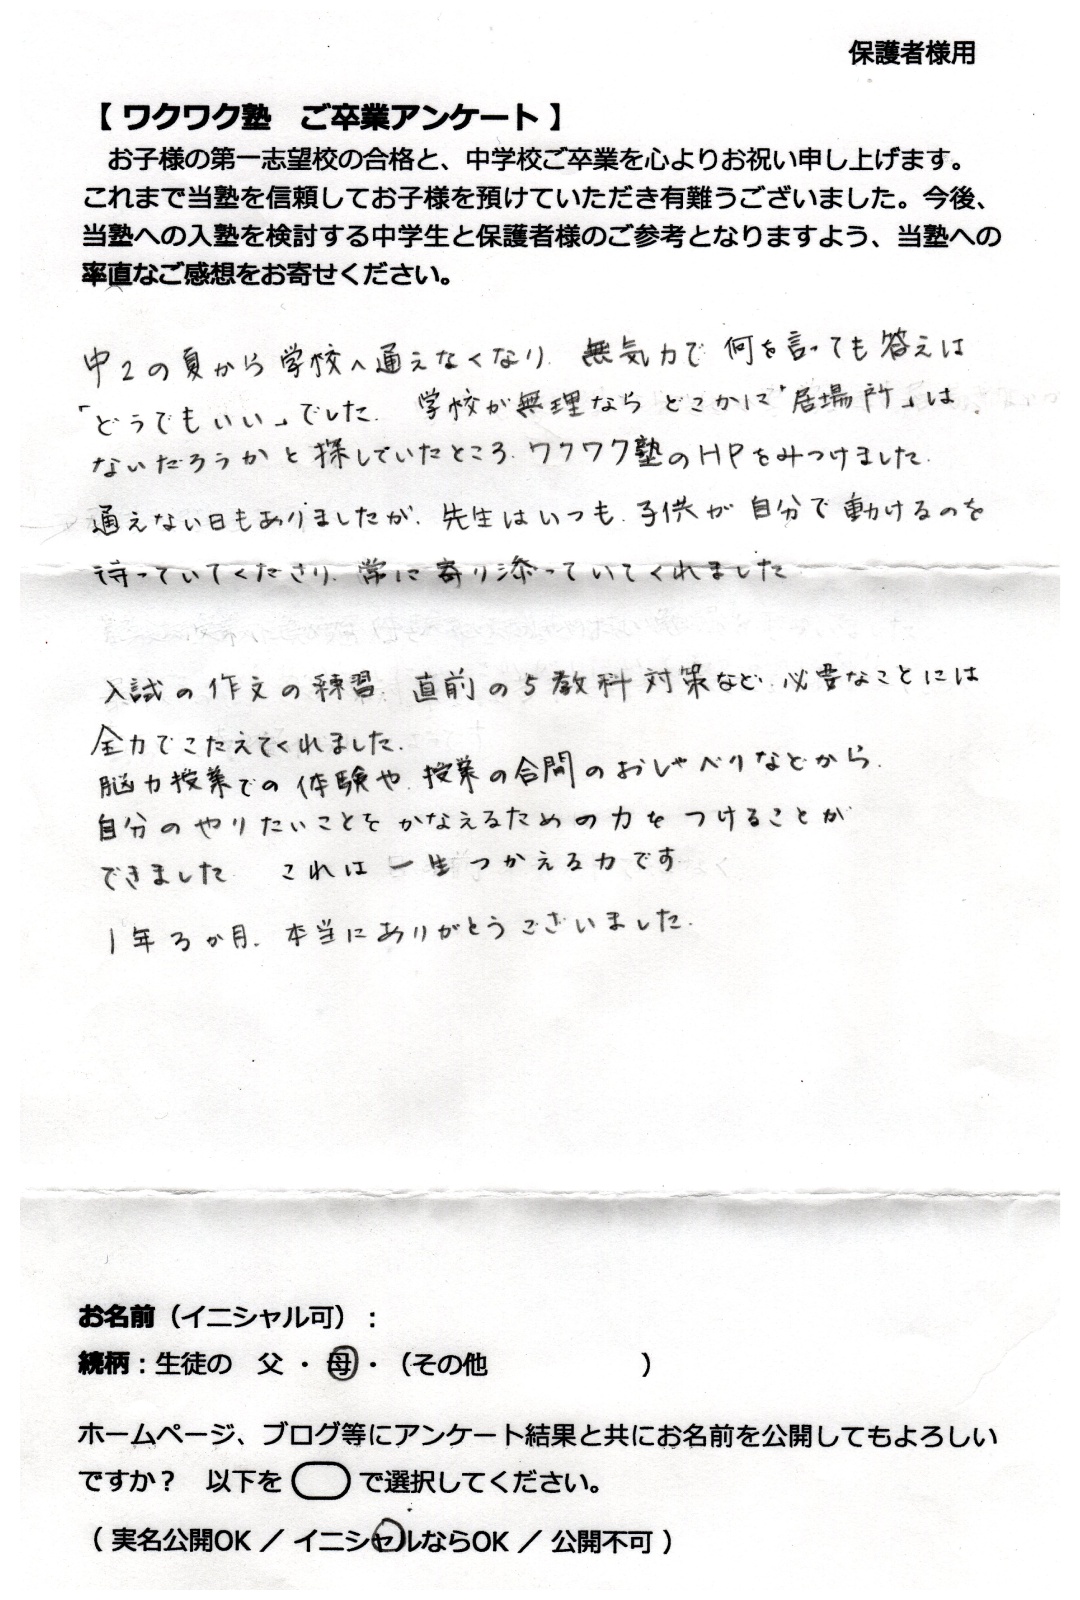 保護者様用
【 ワクワク塾　ご卒業アンケート 】
お子様の第一志望校の合格と、中学校ご卒業を心よりお祝い申し上げます。
これまで当塾を信頼してお子様を預けていただき有難うございました。今後、
当塾への入塾を検討する中学生と保護者様のご参考となりますよう、当塾への
率直なご感想をお寄せください。
中2の夏から学校へ通えなくなり、無気力で何を言っても答えは
「どうでもいい」でした. 学校が無理ならどこかに「居場所」は
ないだろうかと探していたところ、ワクワク塾のHPをみつけました.
通えない日もありましたが、先生はいつも、子供が自分で動けるのを
待っていてくださり、常に寄り添っていてくれました
入試の作文の練習、直前の5教科対策など、必要なことには
全力でこたえてくれました.
脳力授業での体験や、授業の合間のおしゃべりなどから、
自分のやりたいことをかなえるための力をつけることが
できました　これは一生つかえる力です
1年3か月、本当にありがとうございました.
お名前（イニシャル可）：
続柄：生徒の　父 ・ 母 ・（その他　　　　　　）
ホームページ、ブログ等にアンケート結果と共にお名前を公開してもよろしい
ですか？　以下を　　で選択してください。
（ 実名公開OK ／ イニシャルならOK ／ 公開不可 ）